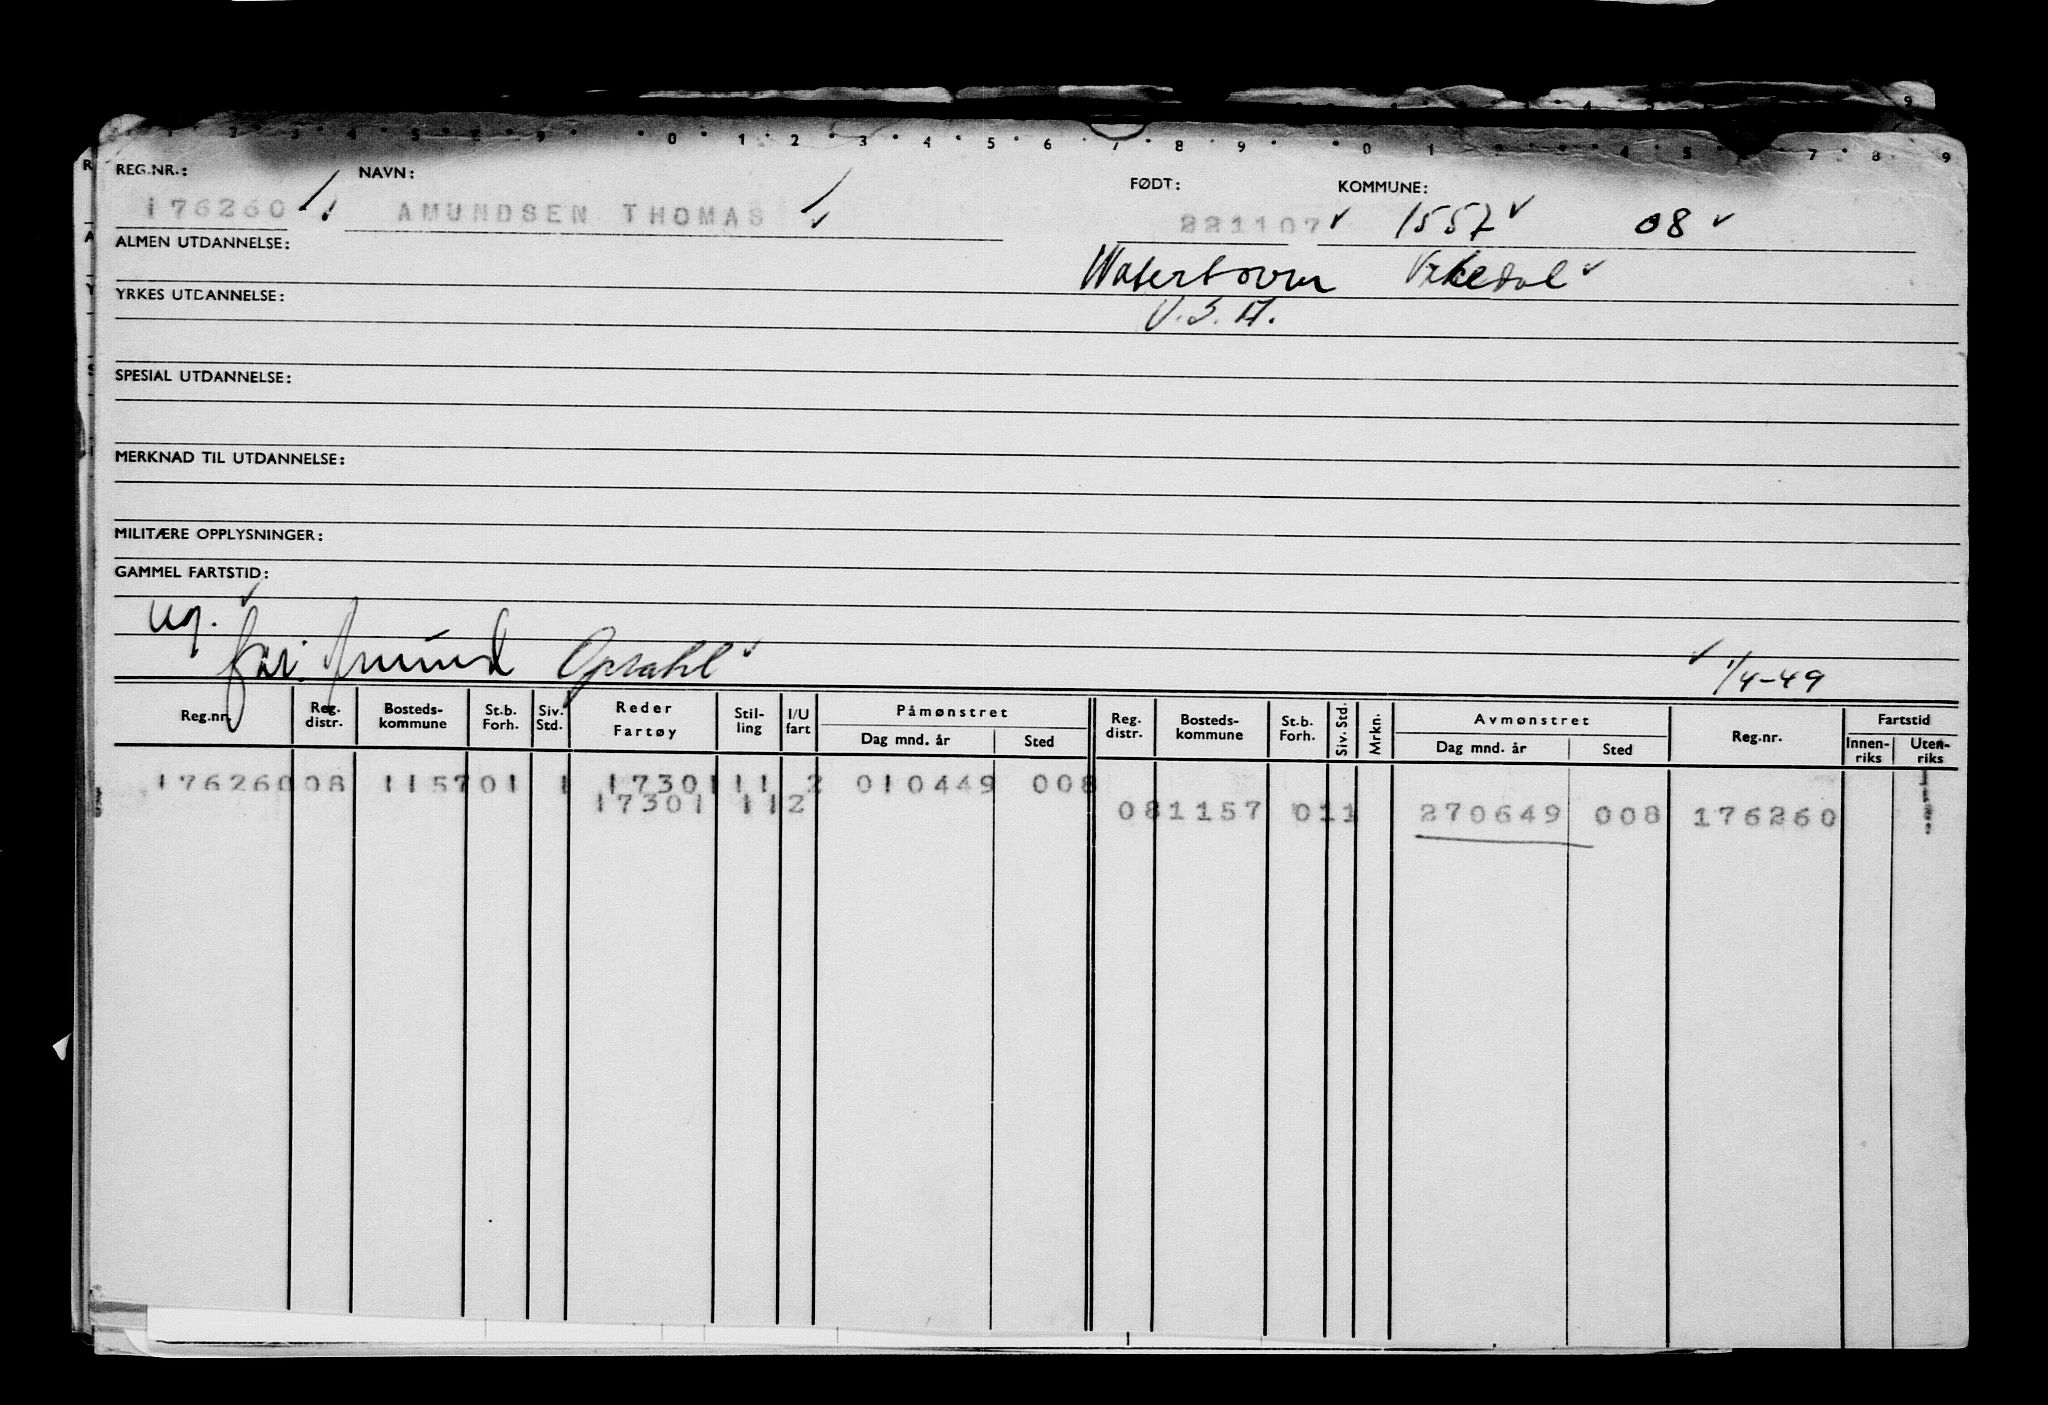 1 2 3 4 5 6 9 0 1 2 3 4 5 6 7 8 9 0 1 2 3 4 5 6 7 8 9
REG.NR.: NAVN: FØDT: KOMMUNE:
176260 AMUNDSEN THOMAS 221107 1557 08
ALMEN UTDANNELSE: U.S.A.
YRKES UTDANNELSE:
SPESIAL UTDANNELSE:
MERKNAD TIL UTDANNELSE:
MILITÆRE OPPLYSNINGER:
GAMMEL FARTSTID:
ug.
far: Amund Opsahl 1/4-49
Reg.nr. Reg. distr. Bosteds-kommune St.b. Forh. Siv. Std. Reder Fartøy Stil-ling I/U fart Påmønstret Dag mnd. år Sted Reg. distr. Bosteds-kommune St.b. Forh. Siv. Std. Mrkn. Avmønstret Dag mnd. år Sted Reg.nr. Fartstid Innen-riks Uten-riks
176260 08 1157 01 1 17301 11 2 010449 008
17301 11 2 08 1157 01 1 270649 008 176260